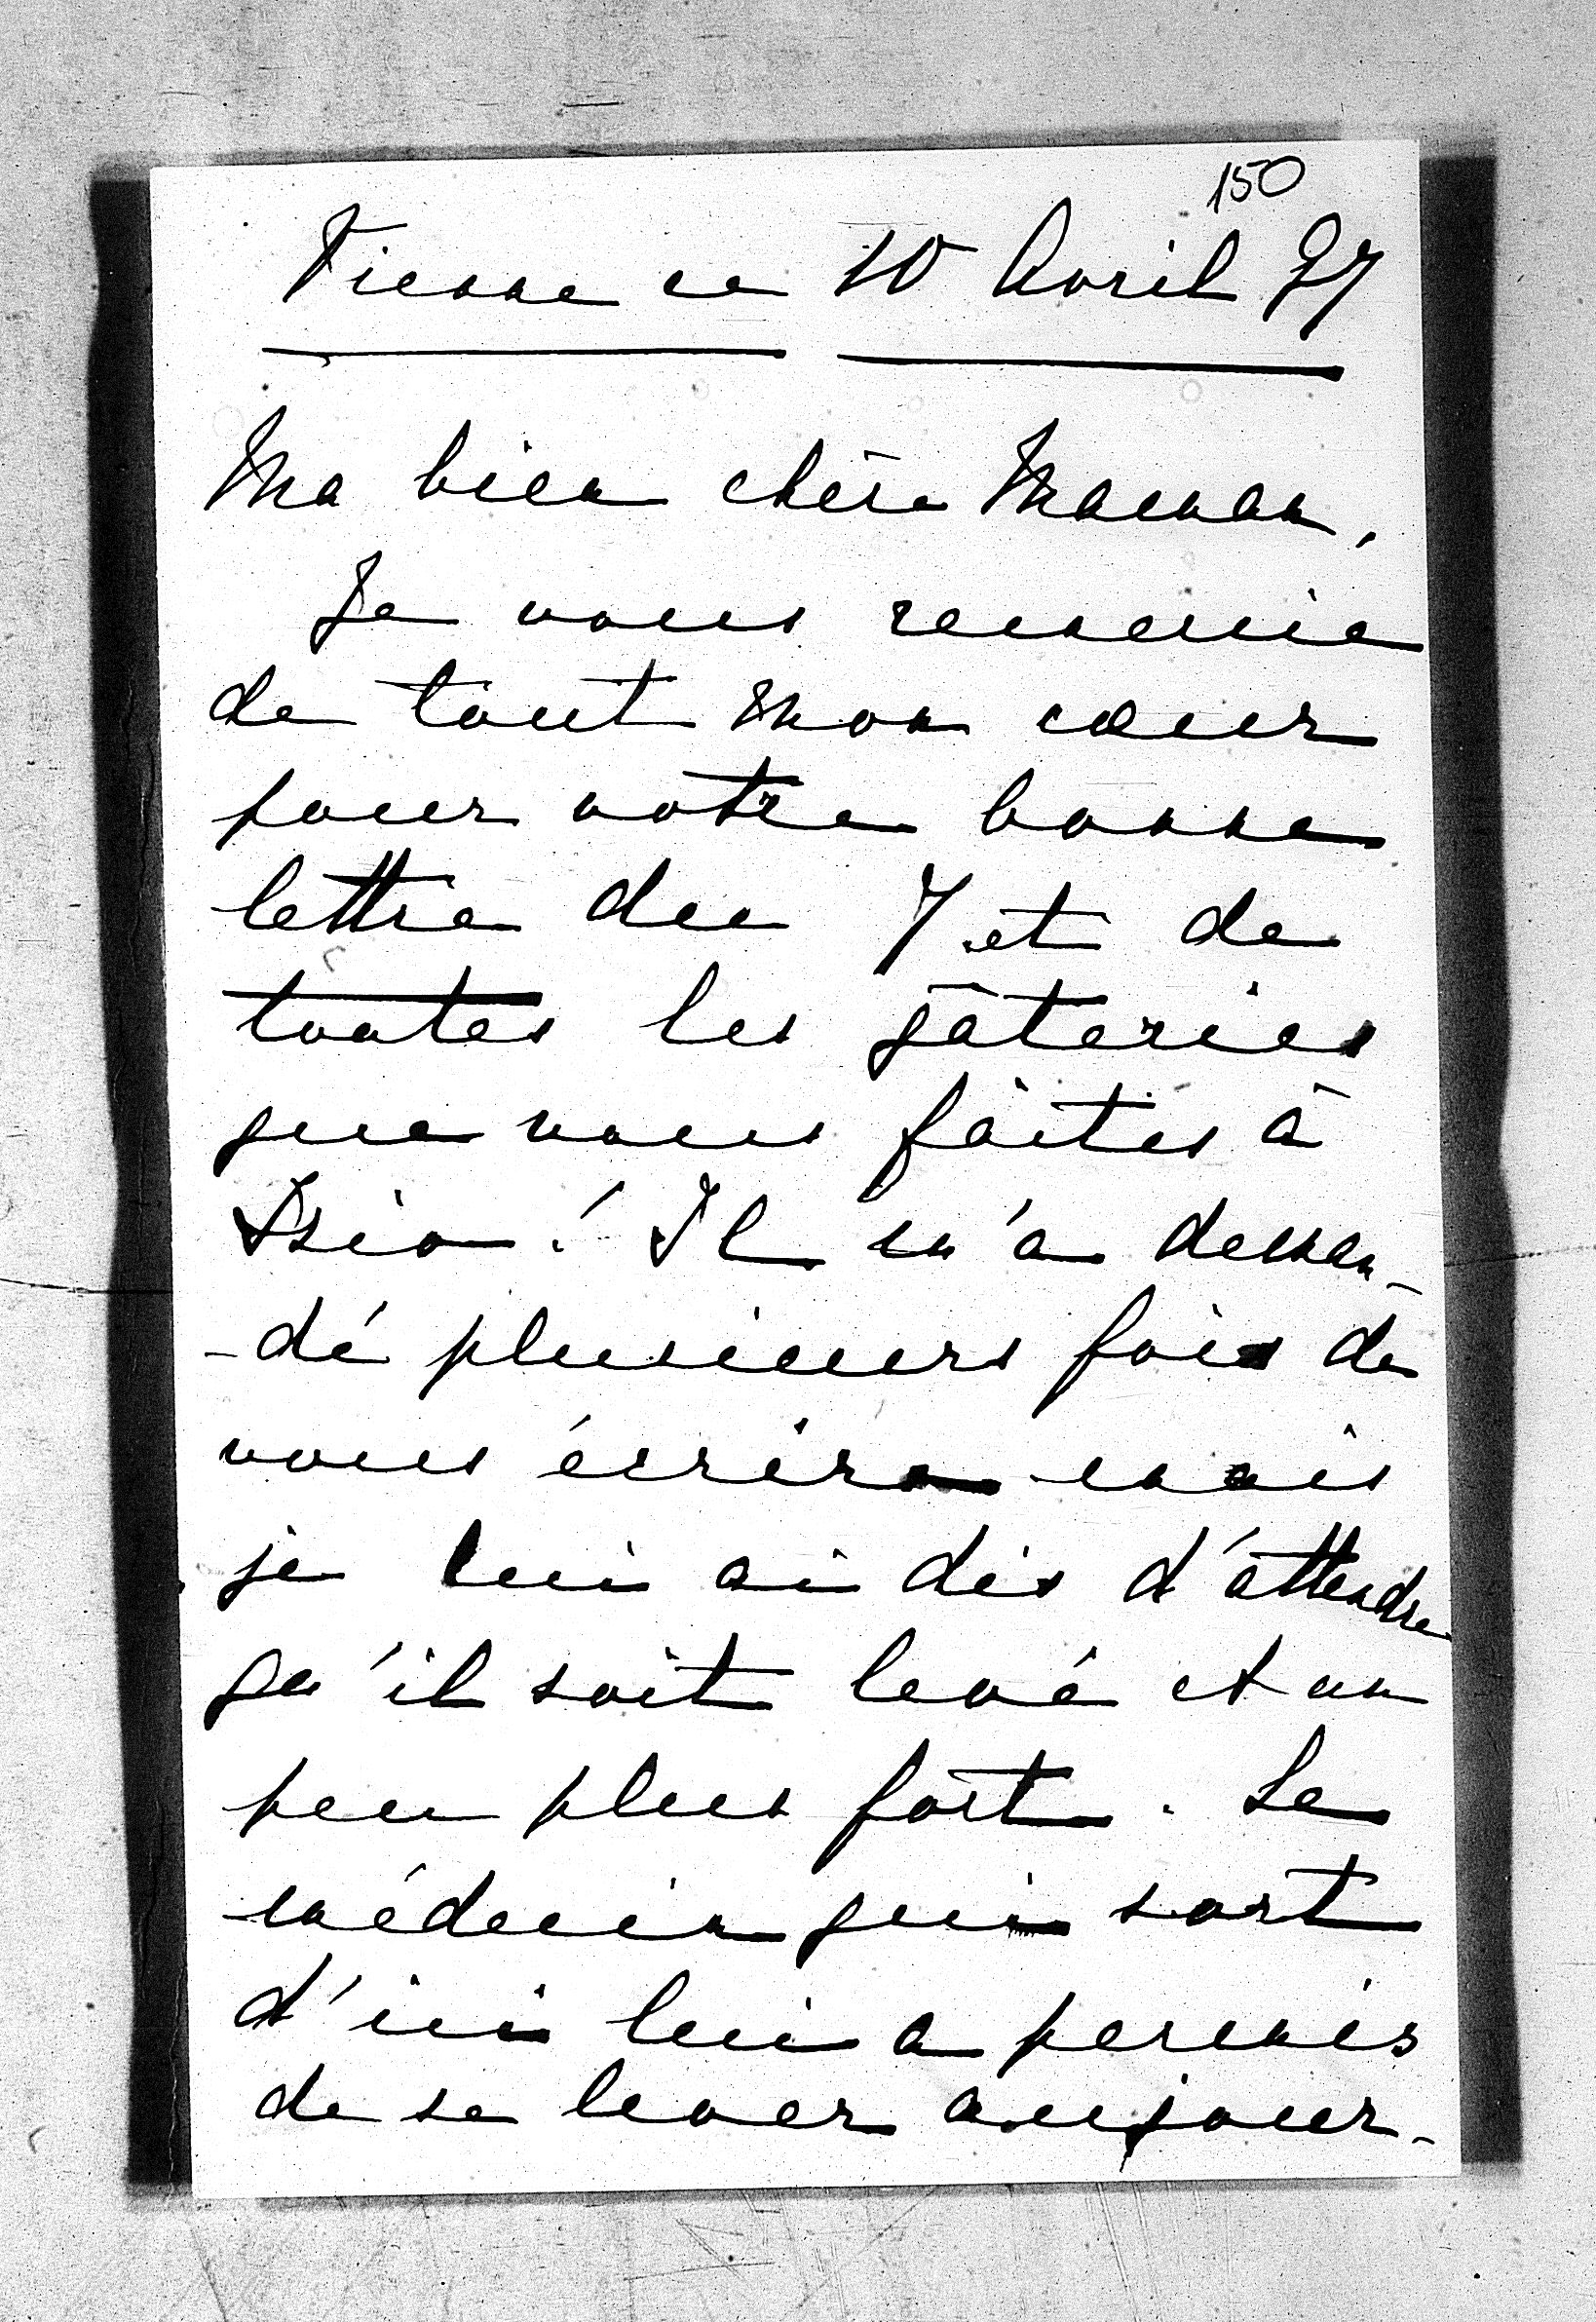 150
Vienne ce 10 Avril 97
Ma bien chère Maman,
Je vous remercie
de tout mon coeur
pour votre bonne
lettre du 7 et de
toutes les gâteries
que vous faites à
Isio! Il m'a deman-
-dé plusieurs fois de
vous écrire mais
je lui ai dis d'attendre
qu'il soit levé et un
peu plus fort. Le
médecin qui sort
d'ici lui a permis
de se lever aujour-